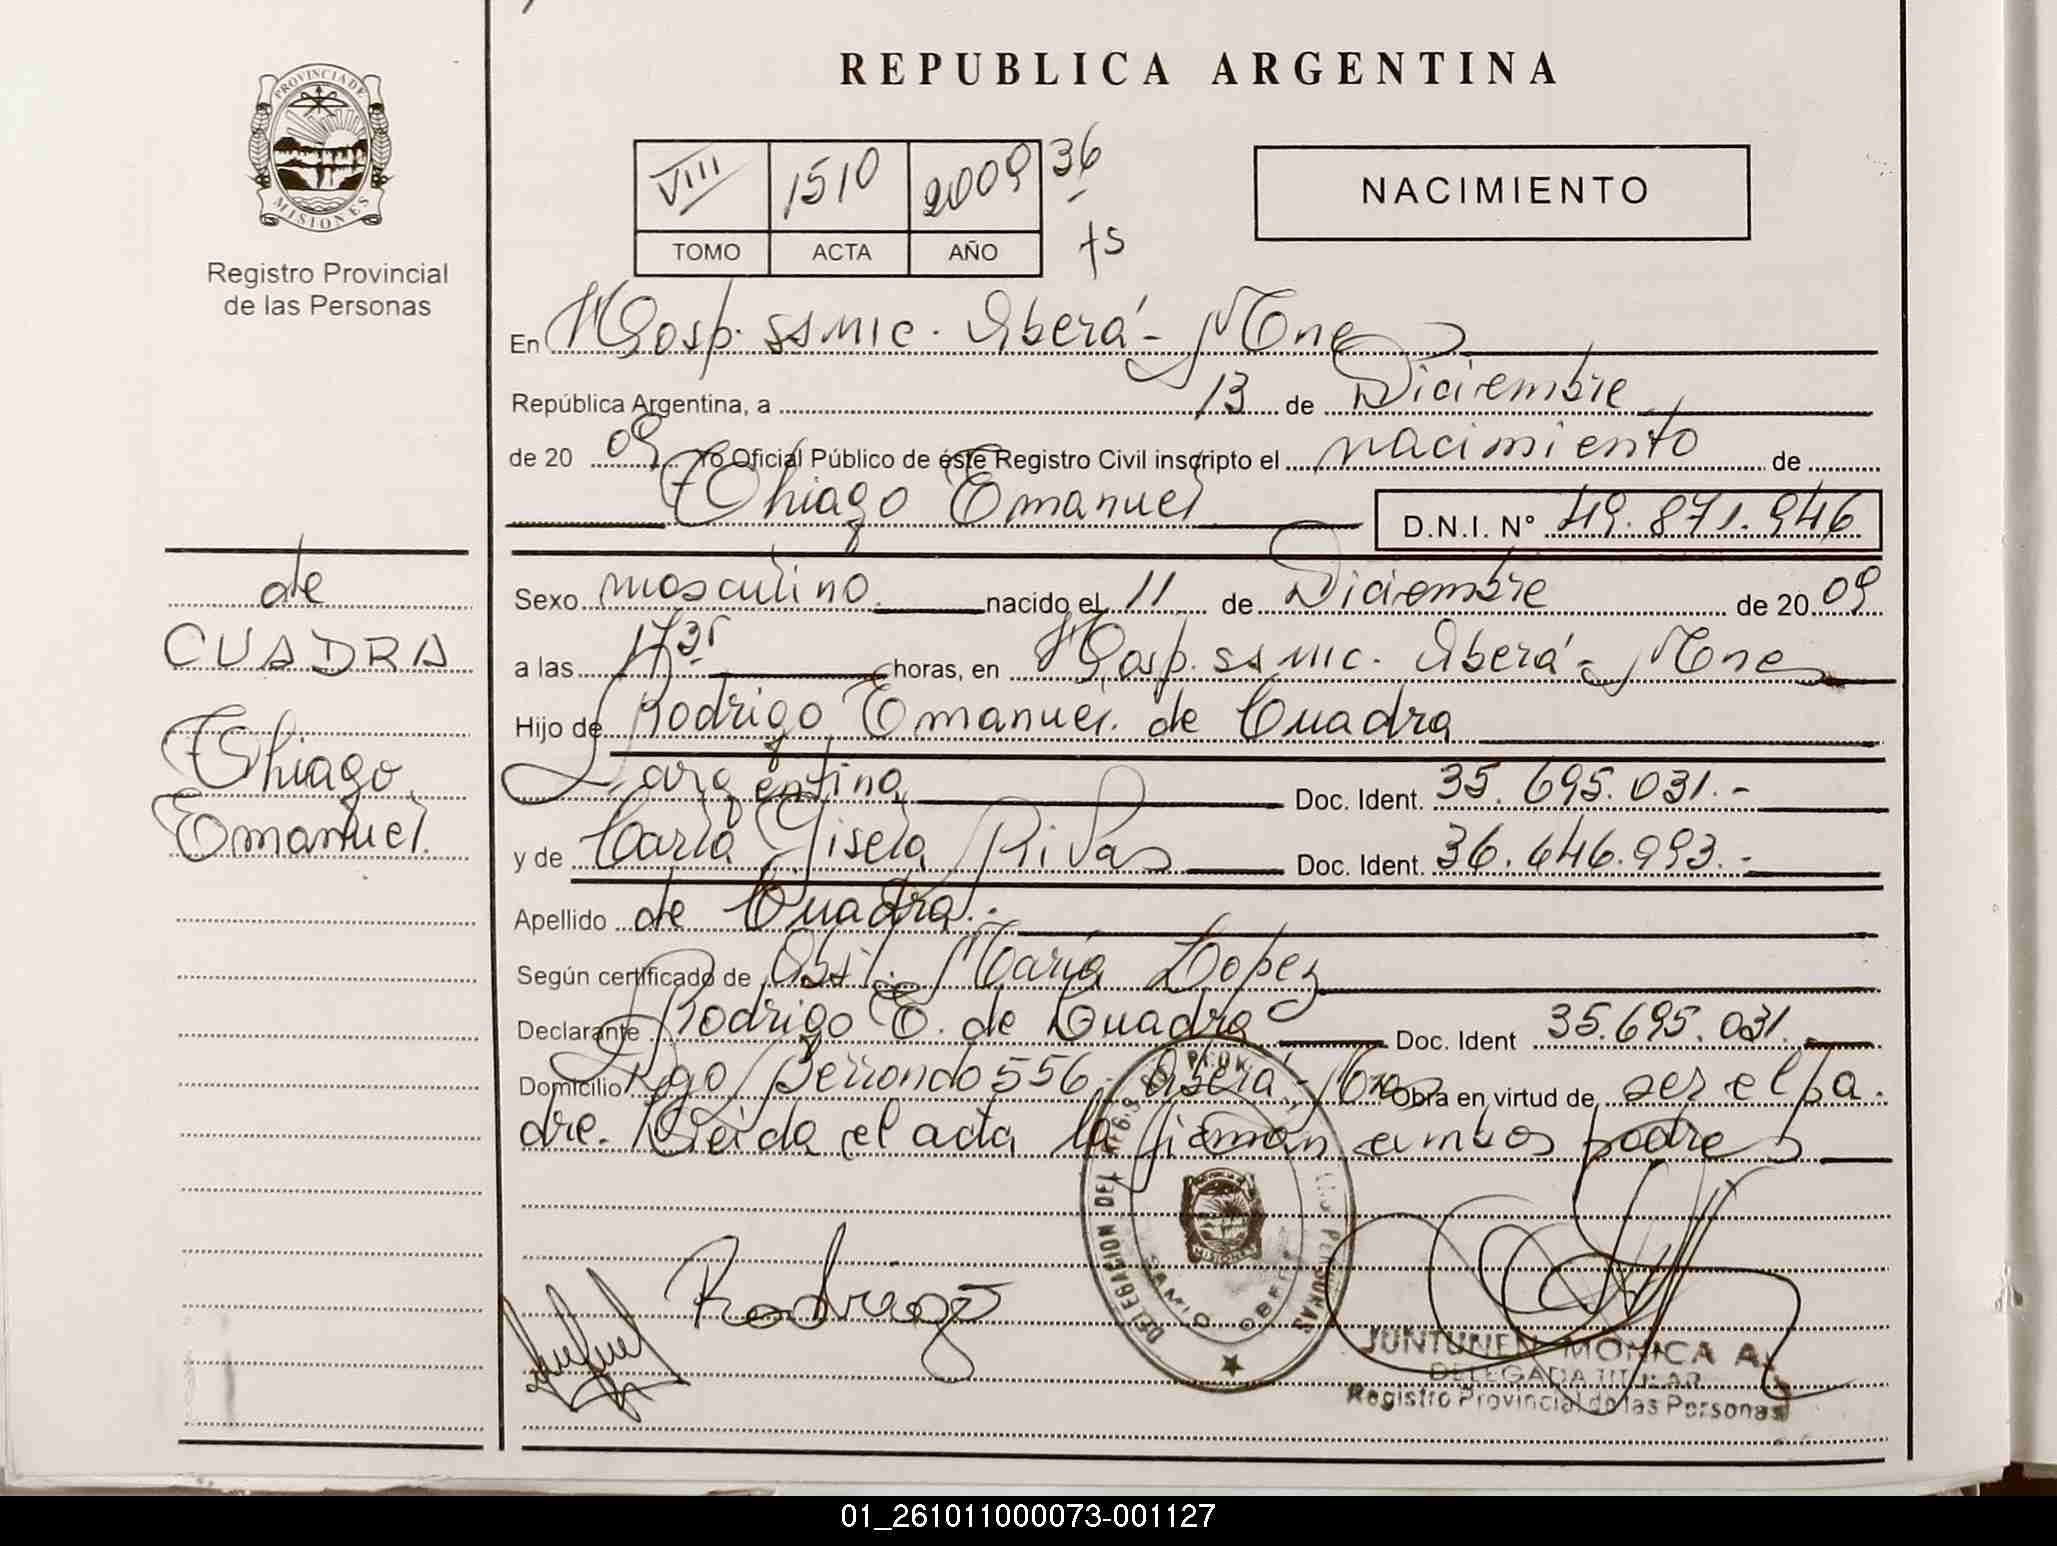 PROVINCIA DE
MISIONES
Registro Provincial
de las Personas
REPUBLICA ARGENTINA
VIII 1510 2009 36
TOMO ACTA AÑO
NACIMIENTO
En Hosp. SSMIC. Oberá - Mnes
República Argentina, a 13 de Diciembre
de 20 09 Yo Oficial Público de éste Registro Civil inscripto el nacimiento de
Thiago Emanuel D.N.I. N° 49.871.946
Sexo masculino nacido el 11 de Diciembre de 20 09
a las horas, en Hosp. SSMIC. Oberá - Mnes
Hijo de Rodrigo Emanuel de Cuadra
argentina Doc. Ident. 35.695.031.-
y de Carla Gisela Rivas Doc. Ident. 36.646.993.-
Apellido de Cuadra.-
Según certificado de Obst. María Lopez
Declarante Rodrigo E. de Cuadra Doc. Ident 35.695.031.
Domicilio 556 - Oberá - Mnes Obra en virtud de ser el pa
dre. Leída el acta la firman ambos padres
de
CUADRA
Thiago
Emanuel.
Rodrigo
DELEGACION DEL PERSONAS
MISIONES
JUNTUNEN MONICA A.
DELEGADA TITULAR
Registro Provincial de las Personas
01_261011000073-001127